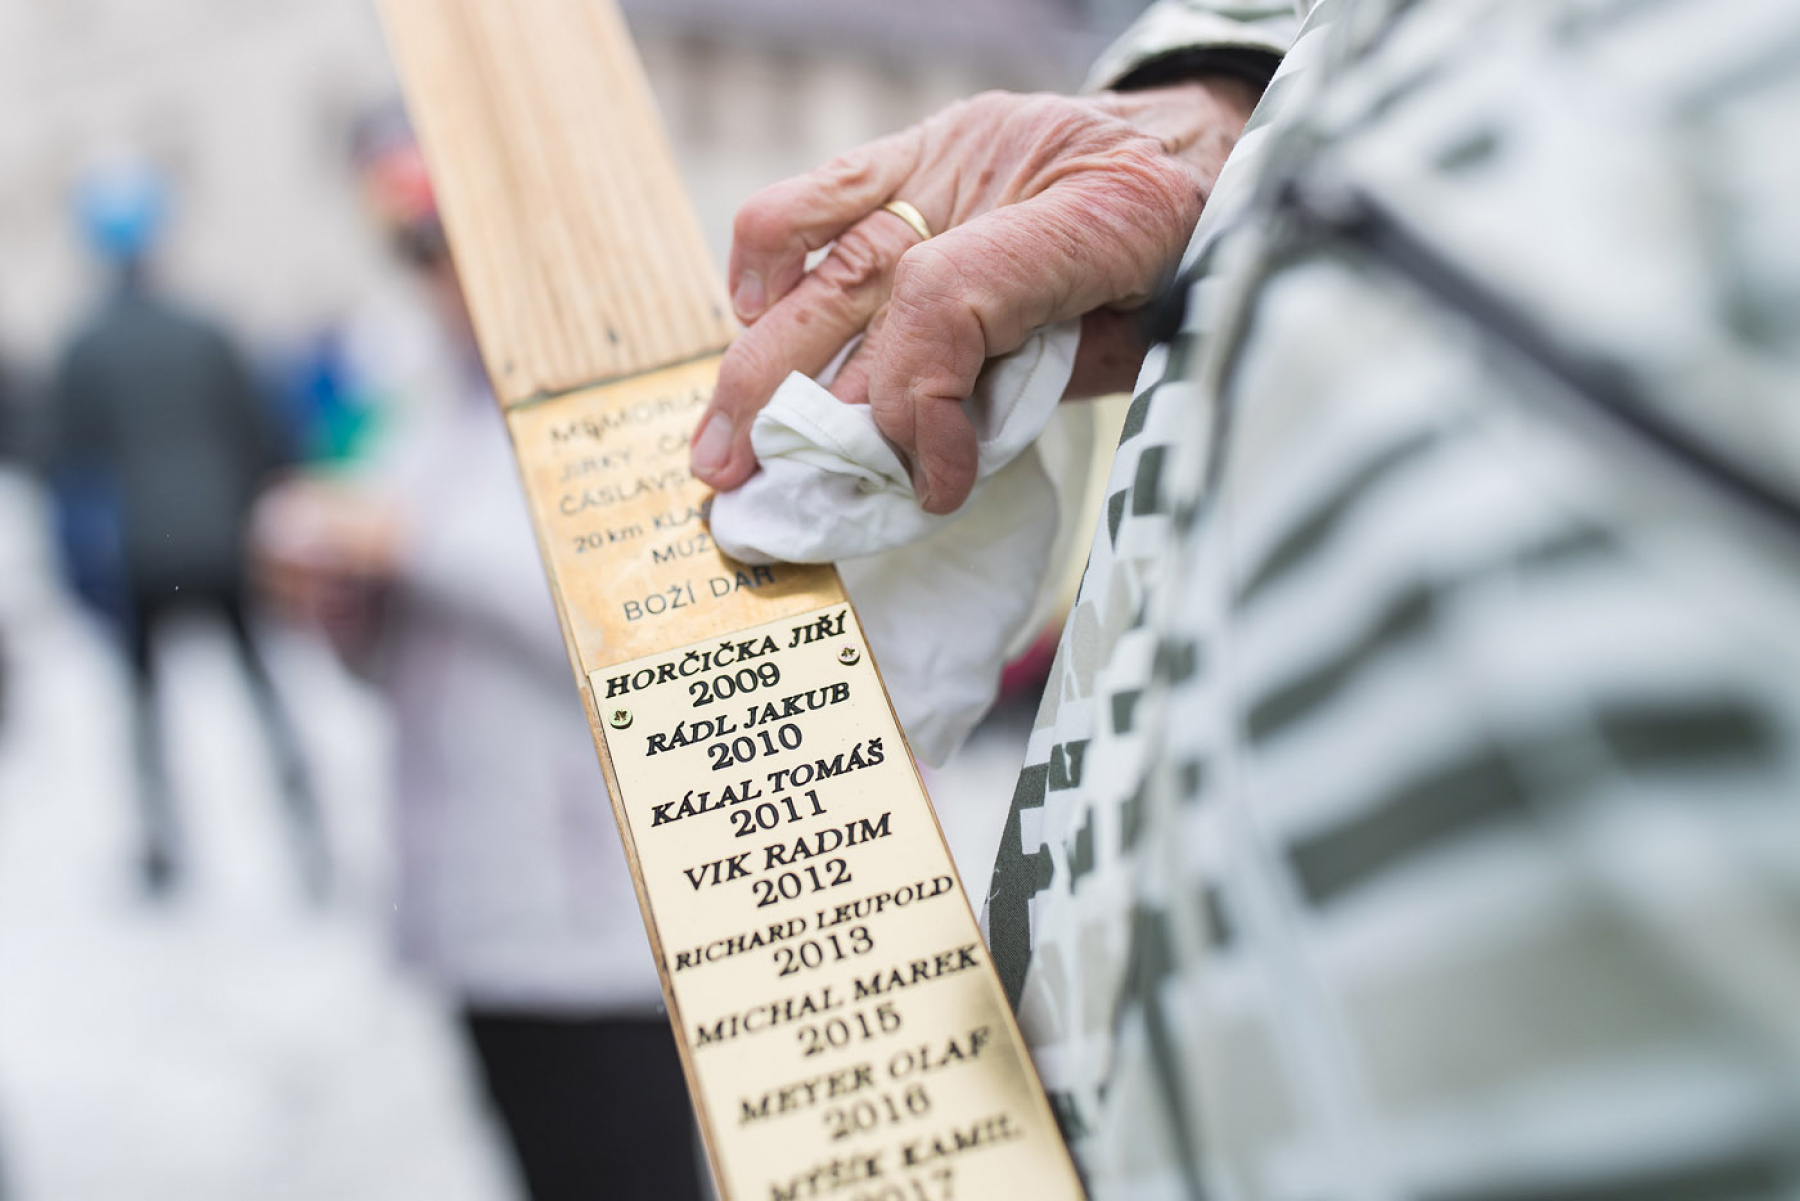 MEMORIA
JIRKY „ČA
ČÁSLAVS
20 km KLA
MUŽ
BOŽÍ DAR
HORČIČKA JIŘÍ
2009
RÁDL JAKUB
2010
KÁLAL TOMÁŠ
2011
VIK RADIM
2012
RICHARD LEUPOLD
2013
MICHAL MAREK
2015
MEYER OLAF
2016
MYŠÍK KAMIL
2017